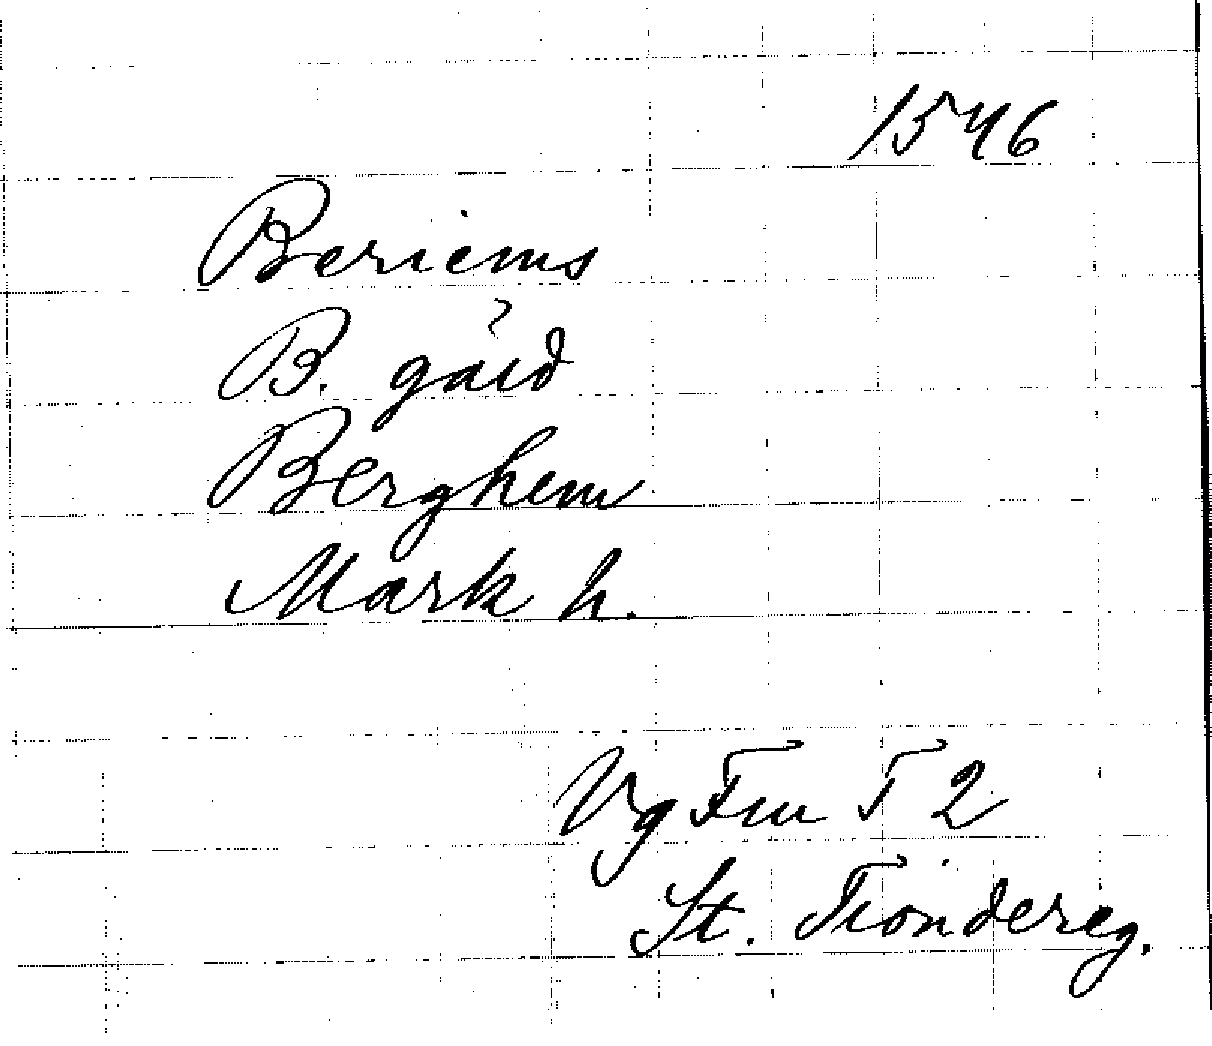 1546
Beriems
B. gård
Berghem
Mark h.
Vg Fru T 2
St. Tiondereg.